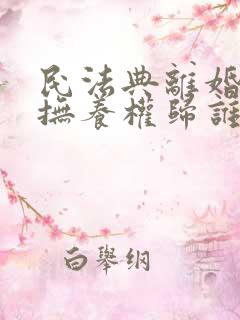 民法典離婚
撫養權歸誰
白舉纲